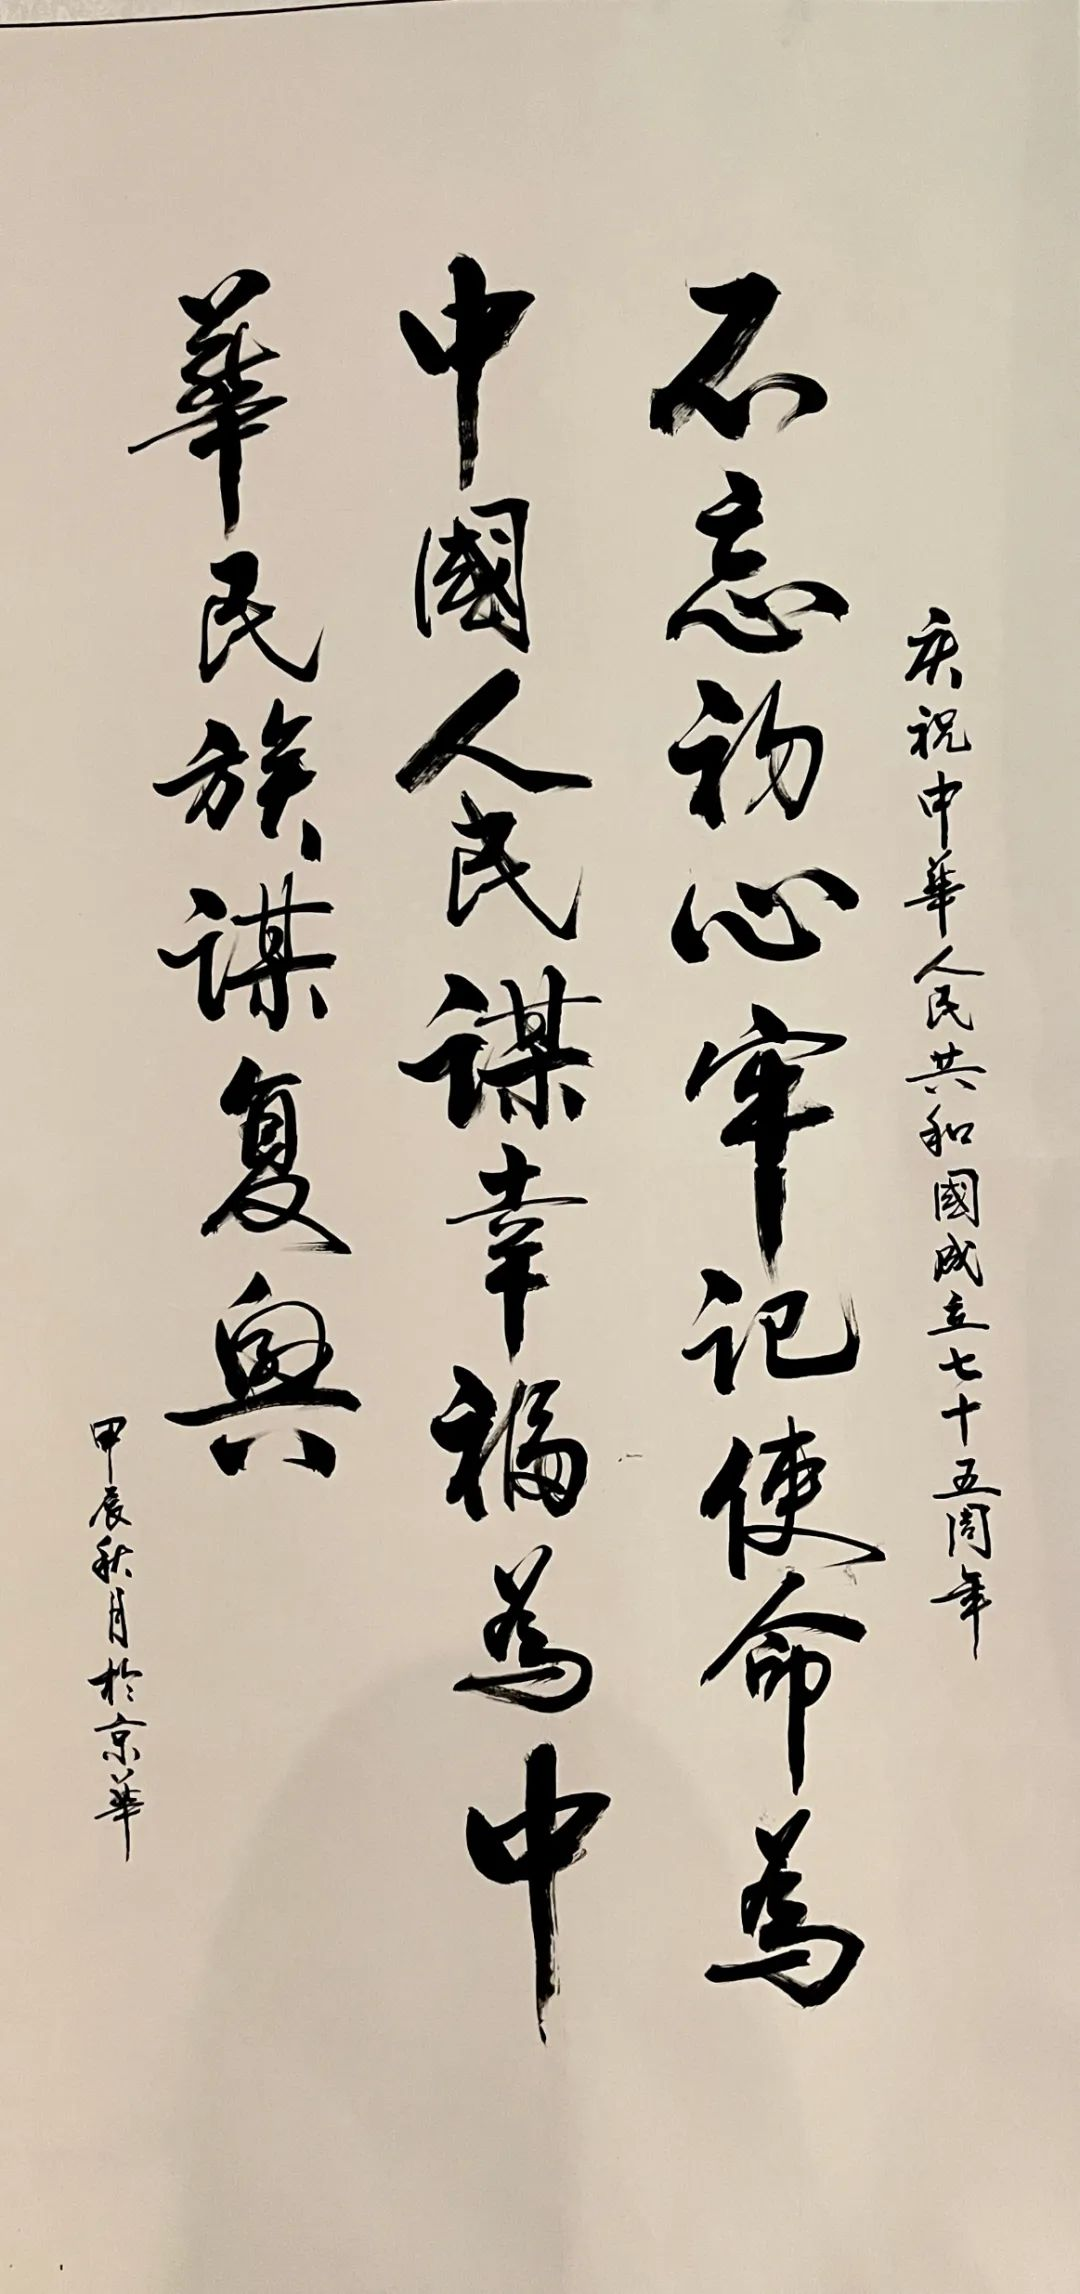 庆祝中華人民共和國成立七十五周年
不忘初心牢记使命為
中國人民谋幸福為中
華民族谋复興
甲辰秋月於京華